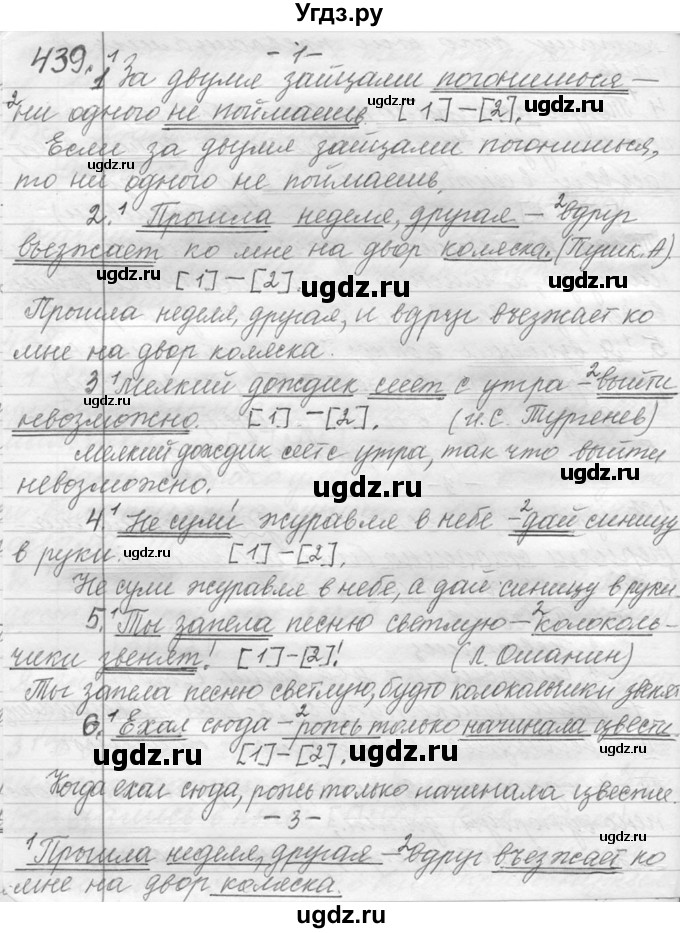 Угдз.ру
439. - 1 -
1. ¹За двумя зайцами погонишься —
²ни одного не поймаешь. [1]—[2].
Если за двумя зайцами погонишься,
то ни одного не поймаешь.
2. ¹Прошла неделя, другая - ²вдруг
въезжает ко мне на двор коляска. (Пушк. А)
[1]—[2].
Прошла неделя, другая, и вдруг въезжает ко
мне на двор коляска.
3 ¹Мелкий дождик сеет с утра - ²выйти
невозможно. [1]-[2]. (И.С. Тургенев)
Мелкий дождик сеет с утра, так что выйти
невозможно.
4. ¹Не сули журавля в небе - ²дай синицу
в руки. [1]-[2].
Не сули журавля в небе, а дай синицу в руки
5. ¹Ты запела песню светлую - ²колоколь-
чики звенят! [1]-[2]! (Л. Ошанин)
Ты запела песню светлую, будто колокольчики звенят
6. ¹Ехал сюда - ²рожь только начинала цвести.
[1]-[2].
Когда ехал сюда, рожь только начинала цвести.
- 3 -
¹Прошла неделя, другая - ²вдруг въезжает ко
мне на двор коляска.
ugdz.ru
ugdz.ru
ugdz.ru
ugdz.ru
ugdz.ru
ugdz.ru
ugdz.ru
ugdz.ru
ugdz.ru
ugdz.ru
ugdz.ru
ugdz.ru
ugdz.ru
ugdz.ru